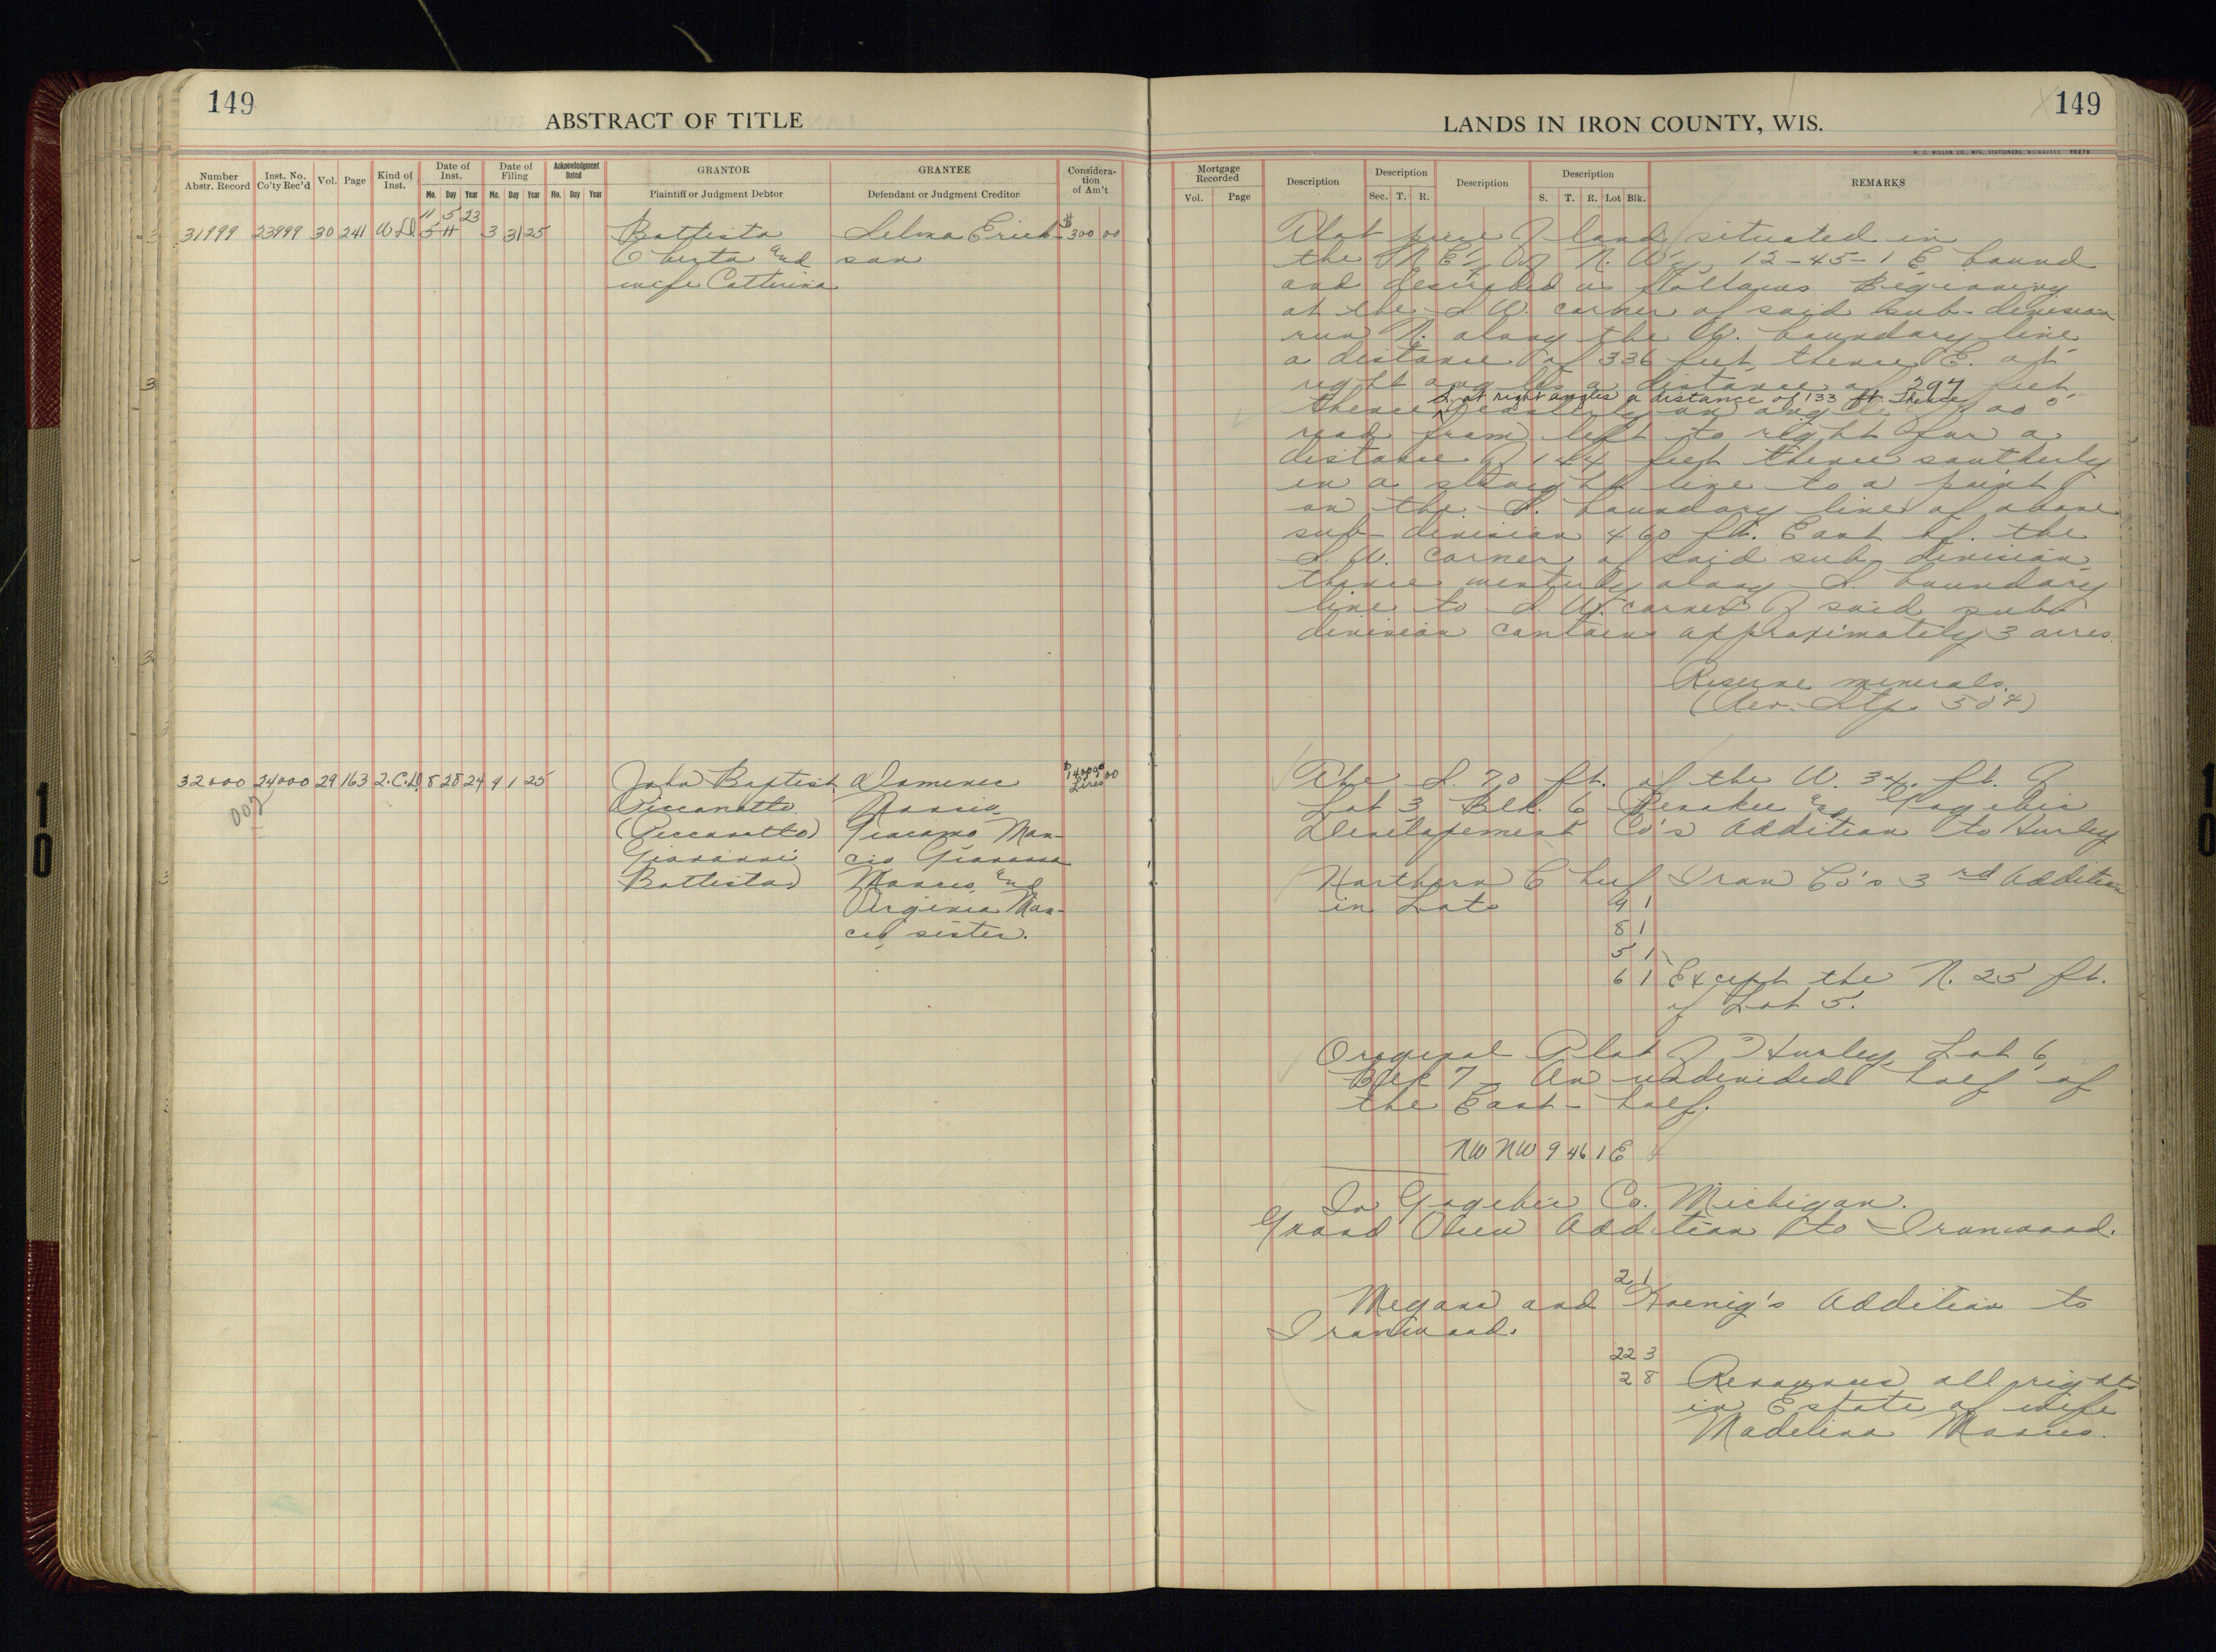 149
ABSTRACT OF TITLE
Number Abstr. Record
Inst. No. Co'ty Rec'd
Vol.
Page
Kind of Inst.
Date of Inst.
Mo. Day Year
Date of Filing
Mo. Day Year
Acknowledgment Dated
Mo. Day Year
GRANTOR
Plaintiff or Judgment Debtor
GRANTEE
Defendant or Judgment Creditor
Considera-
tion
of Am't
11 5 23
31999 23999 30 241 W.D. 5 11 3 31 25 Battista Selma Erick- $300 00
Oberta and son
wife Catterina
32000 24000 29 163 2.C.D. 8 28 24 4 1 25 John Baptist Domenic
Lires 00
(Piccanatto) Giacomo Man-
Giovanni cio Giovanna
Battista) Mancio and
Virginia Man-
cio, sister.
149
LANDS IN IRON COUNTY, WIS.
H. C. MILLER CO., MFG. STATIONERS, MILWAUKEE
Mortgage Recorded
Vol. Page
Description
Description
Sec. T. R.
Description
Description
S. T. R. Lot Blk.
REMARKS
That piece of land situated in
the N.E. ¼ of N.W. ¼, 12-45-1 E bound
and described as follows Beginning
at the S.W. corner of said sub-division
run N. along the W. boundary line
a distance of 336 feet, thence E. at
right angles a distance of 297 feet
S. at right angles a distance of 133 ft. thence
thence easterly on angle of
road from left to right for a
distance of 144 feet thence southerly
in a straight line to a point
on the S. boundary line of above
sub-division 460 ft. East of the
S.W. corner of said sub-division,
thence westerly along S. boundary
line to S.W. corner of said sub-
division contains approximately 3 acres.
Reserve minerals.
(Rev. Stp. 50¢)
The S. 70 ft. of the W. 34 ft. of
Lot 3 Blk. 6 Penokee and Gogebic
Development Co's Addition to Hurley
Northern Chief Iron Co's 3rd Addition
in Lots 9 1
8 1
5 1
6 1 Except the N. 25 ft.
of Lot 5.
Original Plat of Hurley Lot 6,
Blk 7 - An undivided half of
the East-half.
NW NW 9 46 1 E
In Gogebic Co. Michigan.
Grand View Addition to Ironwood.
2 1
and Koenig's Addition to
Ironwood.
22 3
2 8 Renounces all rights
in Estate of wife
Madelina Mancio.